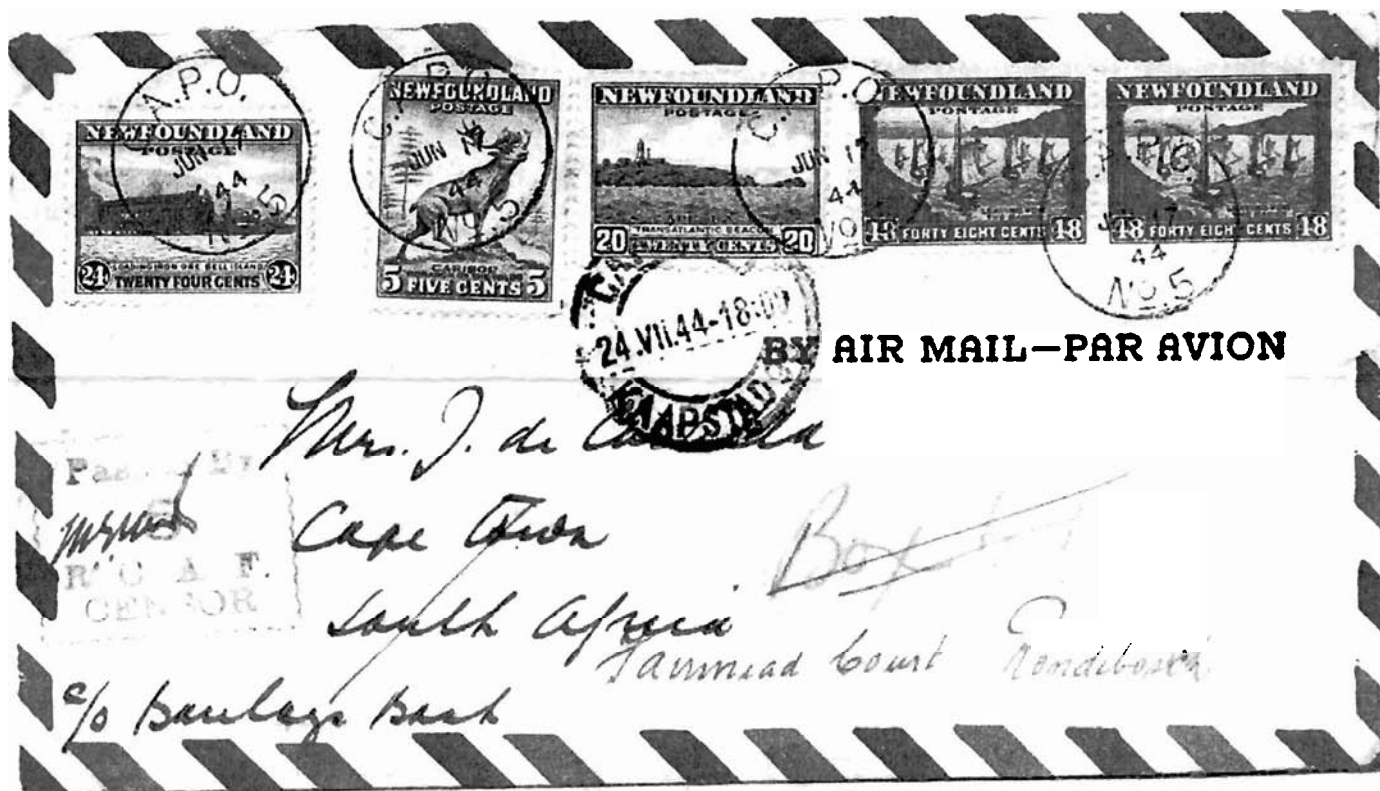 C.A.P.O.
JUN 17
44
No 5
NEWFOUNDLAND
POSTAGE
LOADING IRON ORE BELL ISLAND
24 TWENTY FOUR CENTS 24
C.A.P.O.
JUN 17
44
No 5
NEWFOUNDLAND
POSTAGE
CARIBOU
5 FIVE CENTS 5
NEWFOUNDLAND
POSTAGE
TRANSATLANTIC BEACON
20 TWENTY CENTS 20
C.A.P.O
JUN 17
44
No
NEWFOUNDLAND
POSTAGE
48 FORTY EIGHT CENTS 48
NEWFOUNDLAND
POSTAGE
48 FORTY EIGHT CENTS 48
17
44
No. 5
24.VII.44-18:00
KAAPSTAD
BY AIR MAIL–PAR AVION
Mrs. J. de
Cape Town
South Africa
c/o Barclays Bank
Box
Fairmead Court Rondebosch
Passed By
R. C. A. F.
CENSOR